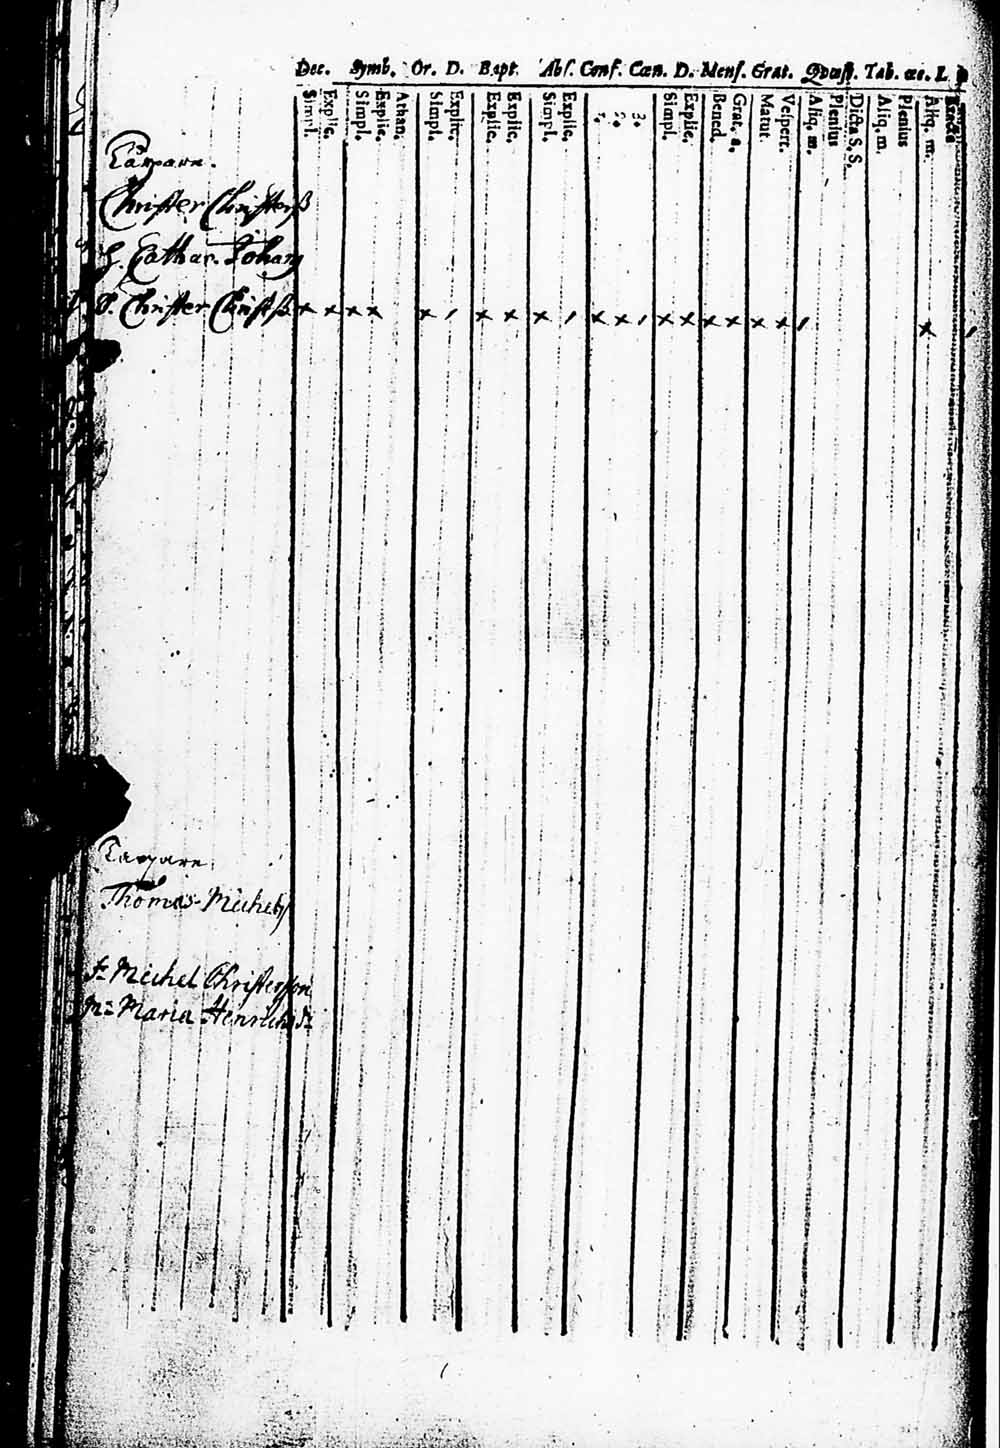 Dec. Symb. Or. D. Bapt. Abs. Conf. Cœn. D. Mens. Grat. Quæst. Tab. œc. L.
Simpl. Explic. Simpl. Explic. Athan. Simpl. Explic. Explic. Explic. Simpl. Explic. 1. 2. 3. Simpl. Explic. Bened. Grat. a. Matut. Vespert. Aliq. m. Plenius Dicta S. S. Aliq. m. Plenius Aliq. m. Exacte
Christer Christerß
H. Cathar. Johans
S. Christer Christß x x x x x , x x x , x x , x x x x x x , x ,
Thomas Michels
F: Michel Christersson
M: Maria Henrichsd: